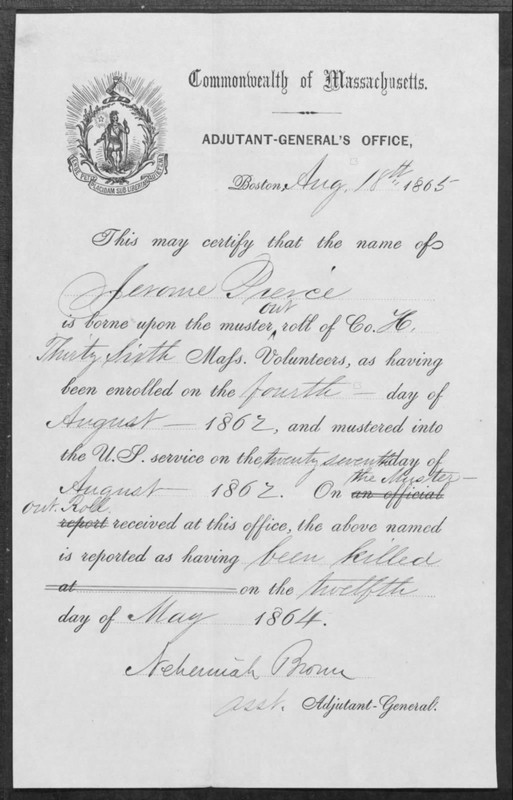 Commonwealth of Massachusetts.
ADJUTANT-GENERAL'S OFFICE,
Boston, Aug. 18th 1865
This may certify that the name of
Jerome Peirce
out
is borne upon the muster roll of Co. H.
Thirty Sixth Mass. Volunteers, as having
been enrolled on the fourth — day of
August — 1862, and mustered into
the U.S. service on the twenty seventh day of
the Muster-
August — 1862. On an official
out Roll
report received at this office, the above named
is reported as having been killed
at on the twelfth
day of May 1864.
Nehemiah Brown
Asst. Adjutant-General.